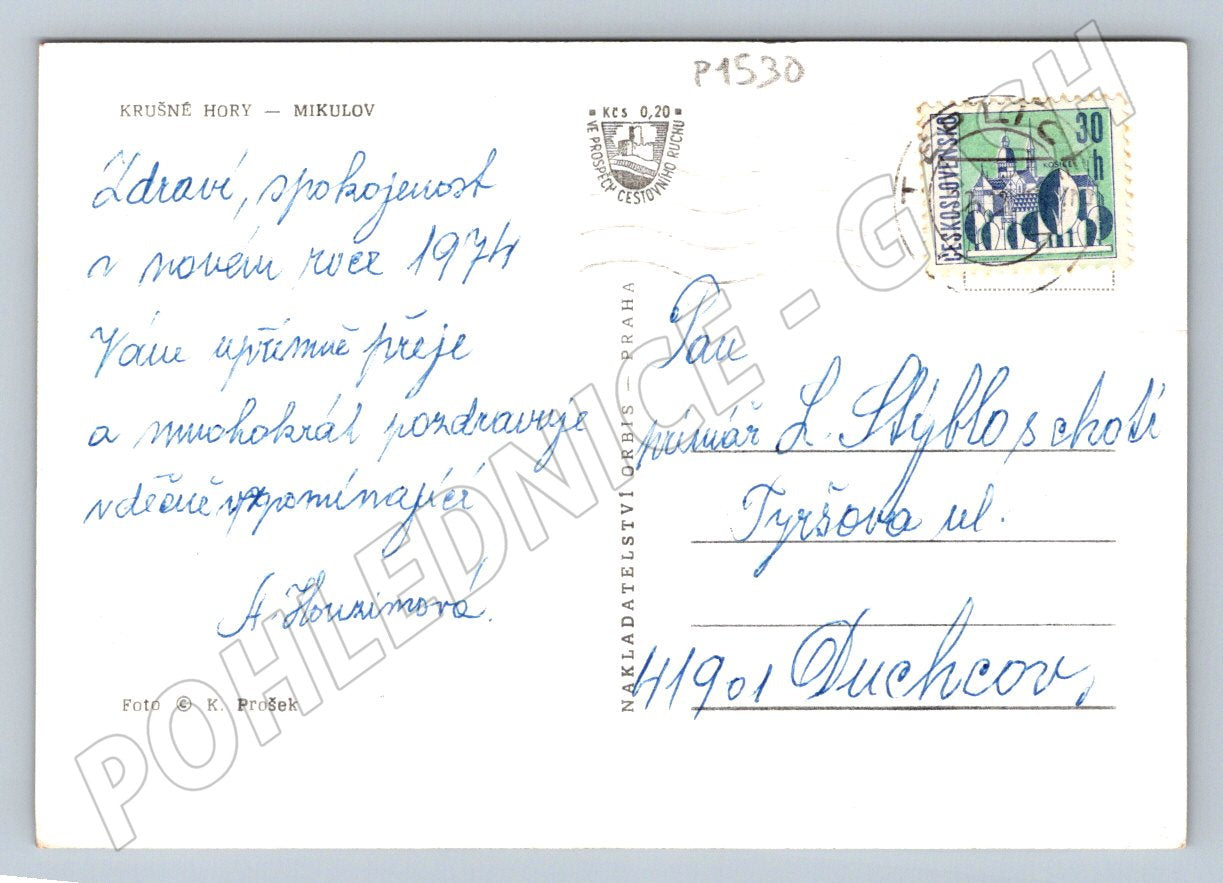 P1530
KRUŠNÉ HORY — MIKULOV
Kčs 0,20
VE PROSPĚCH CESTOVNÍHO RUCHU
ČESKOSLOVENSKO
30 h
KOŠICE
Zdraví, spokojenost
v novém roce 1974
Vám upřímně přeje
a mnohokrát pozdravuje
vděčně vzpomínající
A. Houzimová.
Foto © K. Prošek
NAKLADATELSTVÍ ORBIS — PRAHA
Pan
primář L. Stýblo s chotí
Tyršova ul.
41901 Duchcov,
POHLEDNICE - G - CH